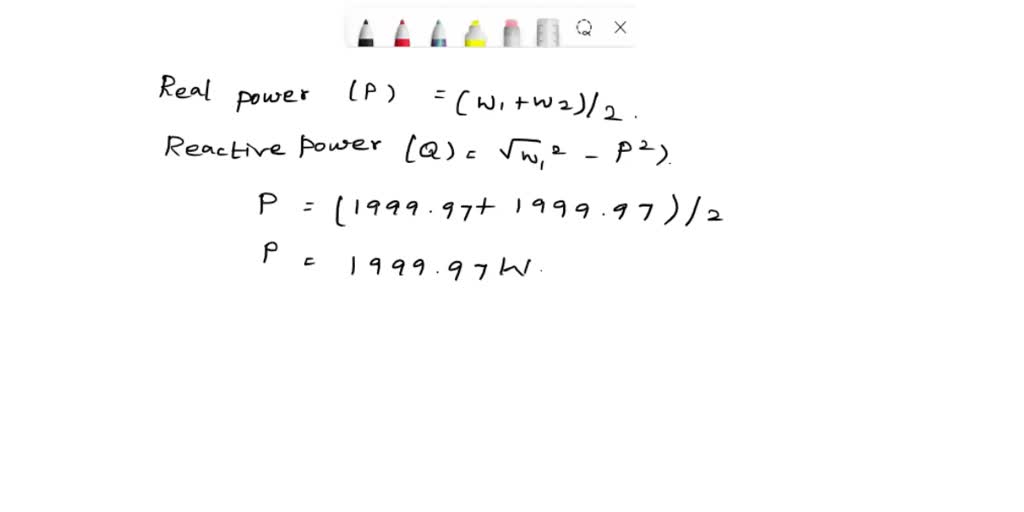 Real power (P) = (W1 + W2)/2.
Reactive power (Q) = √W1² - P²)
P = (1999.97+ 1999.97)/2
P = 1999.97W.